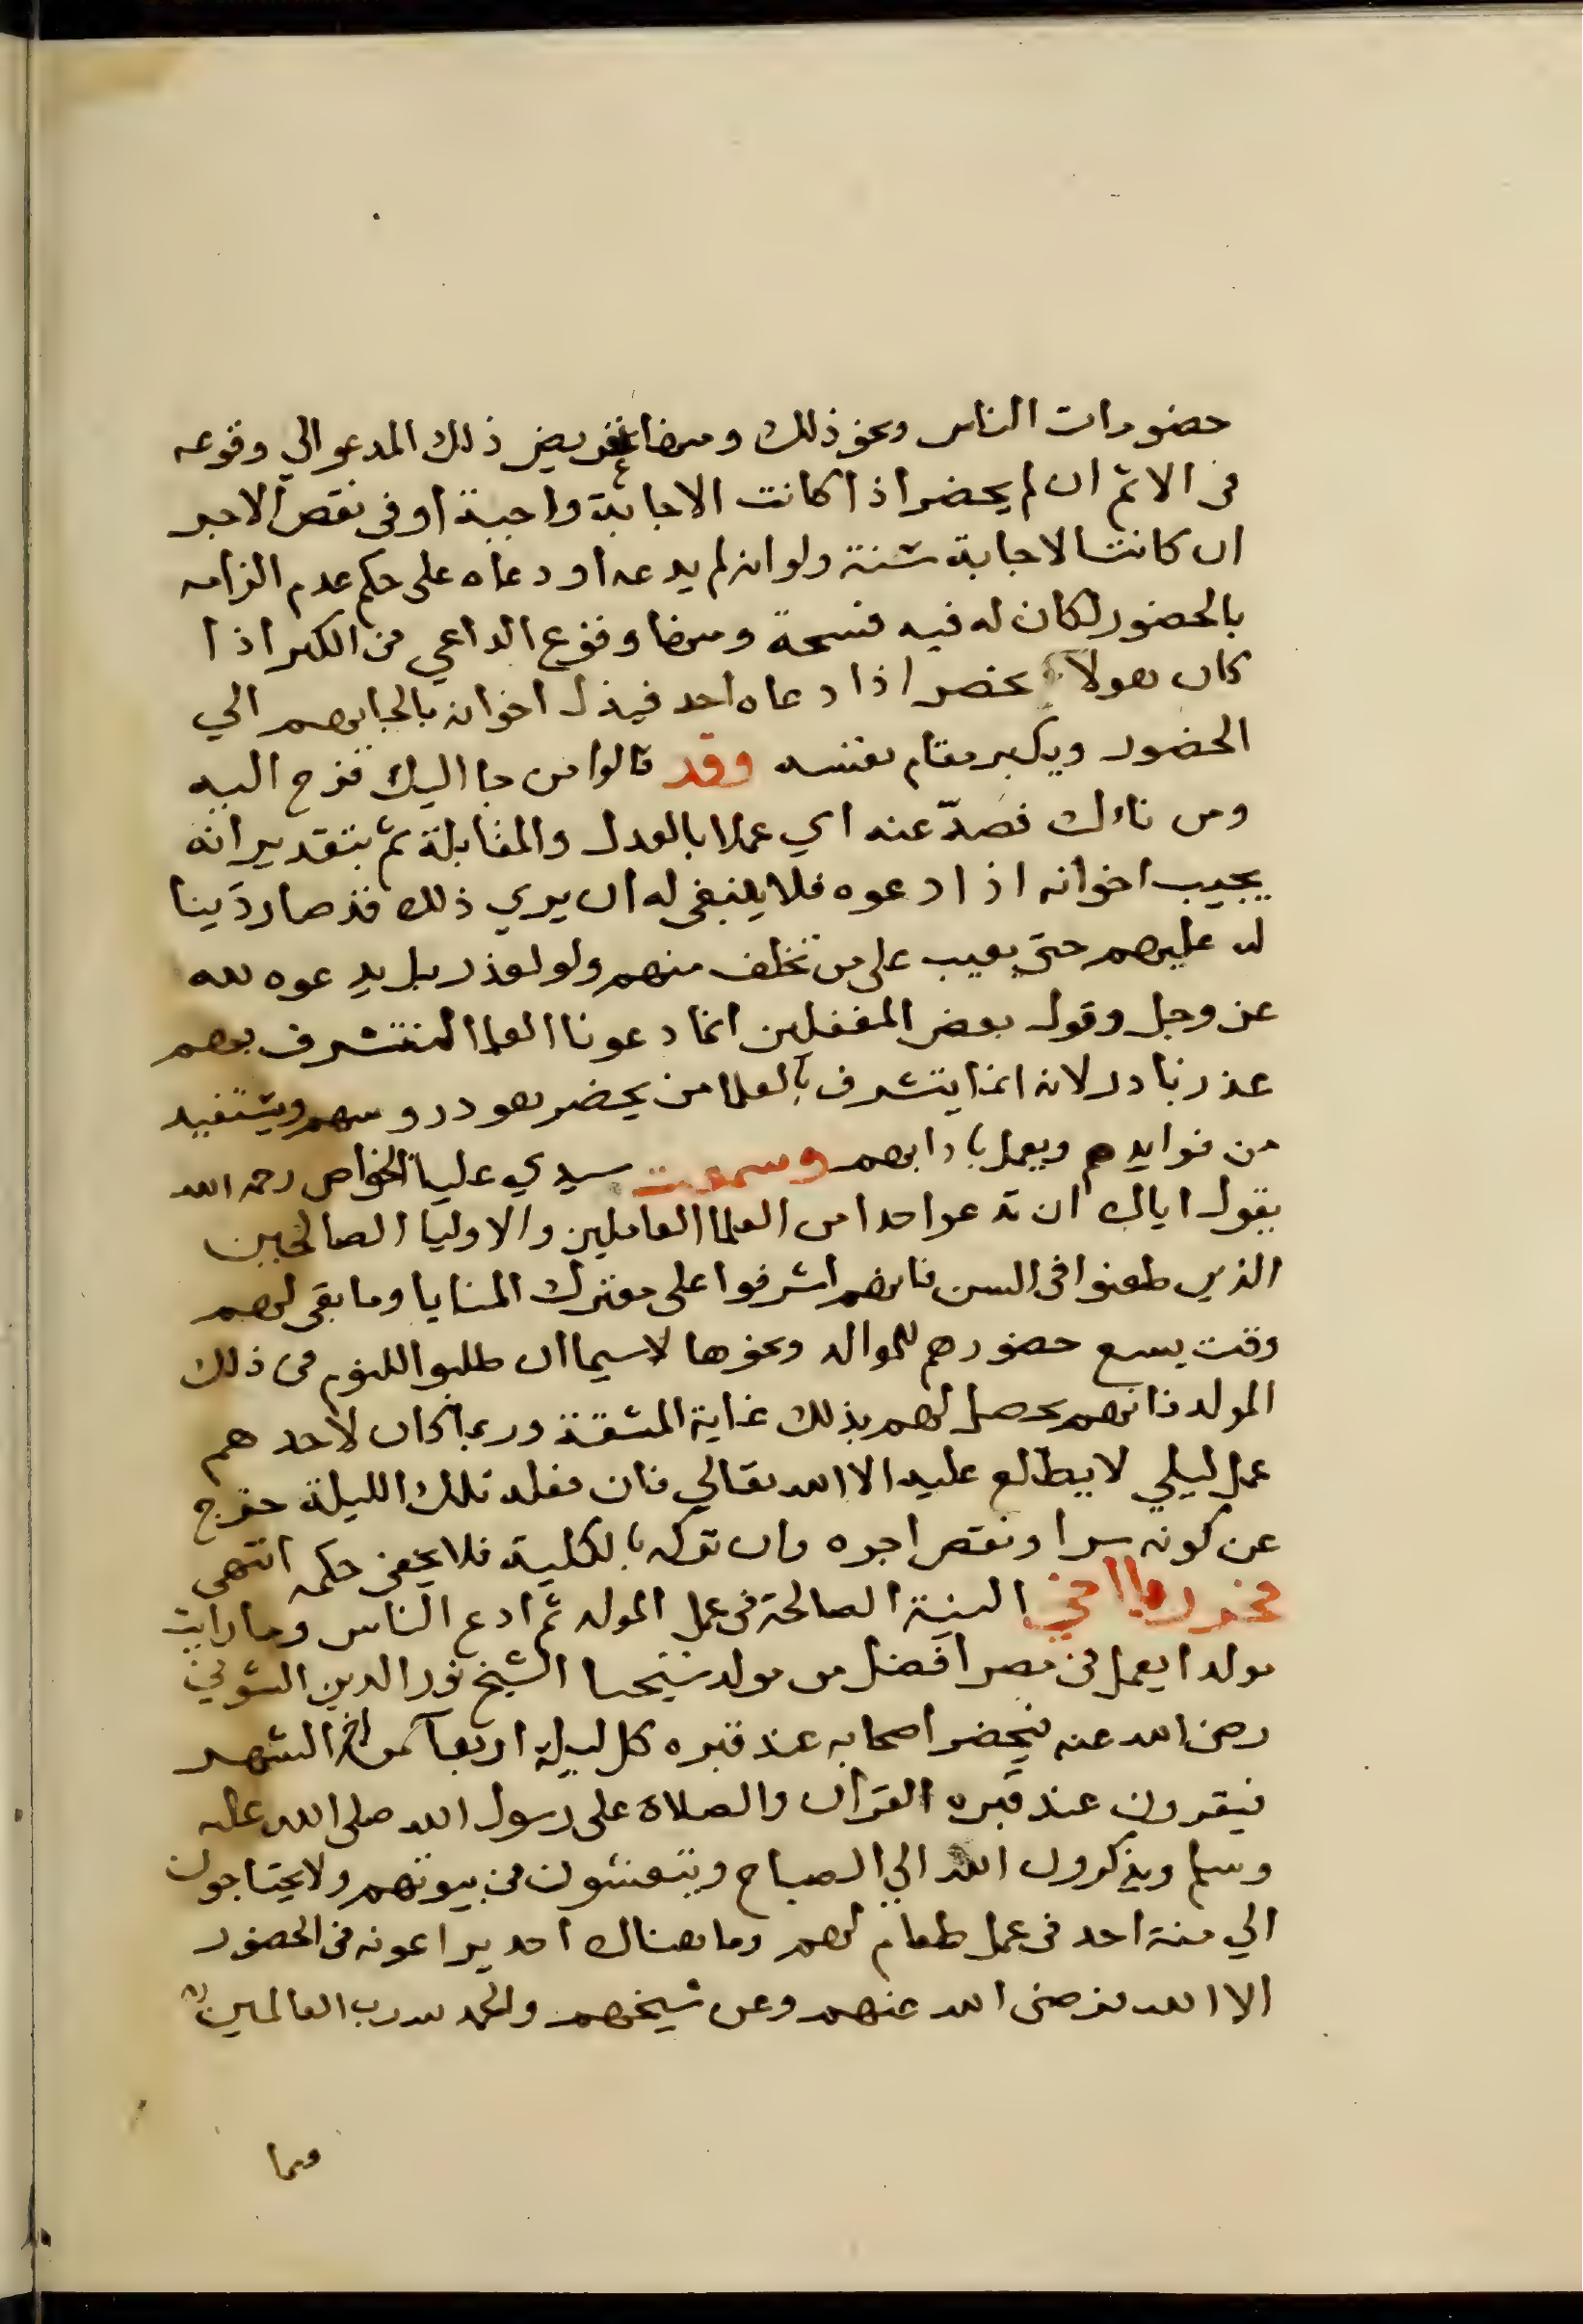 حضورات الناس ونحو ذلك ومنها تعريض ذلك المدعو الي وقوعه
في الاثم ان لم يحضر اذا كانت الاجابة واجبة او في نقص الاجر
ان كانت الاجابة سنة ولو انه لم يدعه او دعاه على حكم عدم الزامه
بالحضور لكان له فيه فسحة ومنها وقوع الداعي في الكبر اذا
كان هو لا يحضر اذا دعاه احد فيذل اخوانه بالجايهم الي
الحضور ويكبر مقام نفسه وقد قالوا من جا اليك فرح اليه
ومن ناءك فصدّ عنه اي عملا بالعدل والمقابلة ثم بتقدير انه
يجيب اخوانه اذا دعوه فلا ينبغي له ان يري ذلك قد صار دَينا
له عليهم حتى يعيب على من تخلف منهم ولو لعذر بل يدعوه لله
عز وجل وقول بعض المغفلين انما دعونا العلما لنتشرف بهم
عذر بارد لانه انما يتشرف بالعلما من يحضر هو دروسهم ويستفيد
من فوايدهم ويعمل بادابهم وسمعت سيدي عليا الخواص رحمه الله
يقول اياك ان تدعو احدا من العلما العاملين والاوليا الصالحين
الذين طعنوا في السن فانهم اشرفوا على معترك المنايا وما بقي لهم
وقت يسع حضورهم للموالد ونحوها لاسيما ان طلبوا للنوم في ذلك
المولد فانهم يحصل لهم بذلك غاية المشقة وربما كان لاحدهم
عمل ليلي لا يطلع عليه الا الله تعالي فان فعله تلك الليلة خرج
عن كونه سرا ونقص اجره وان تركه بالكلية فلا يخفى حكمه انتهى
فحرر يا اخي النية الصالحة في عمل المولد ثم ادع الناس وما رايت
مولدا يعمل في مصر افضل من مولد شيخنا الشيخ نور الدين الشوني
رضي الله عنه فيحضر اصحابه عند قبره كل ليلة اربعا من اخر الشهر
فيقرون عند قبره القران والصلاة على رسول الله صلى الله عليه
وسلم ويذكرون الله الي الصباح ويتعشون في بيوتهم ولا يحتاجون
الي منة احد في عمل طعام لهم وما هناك احد يراعونه في الحضور
الا الله فرضي الله عنهم وعن شيخهم والحمد لله رب العالمين
ومما